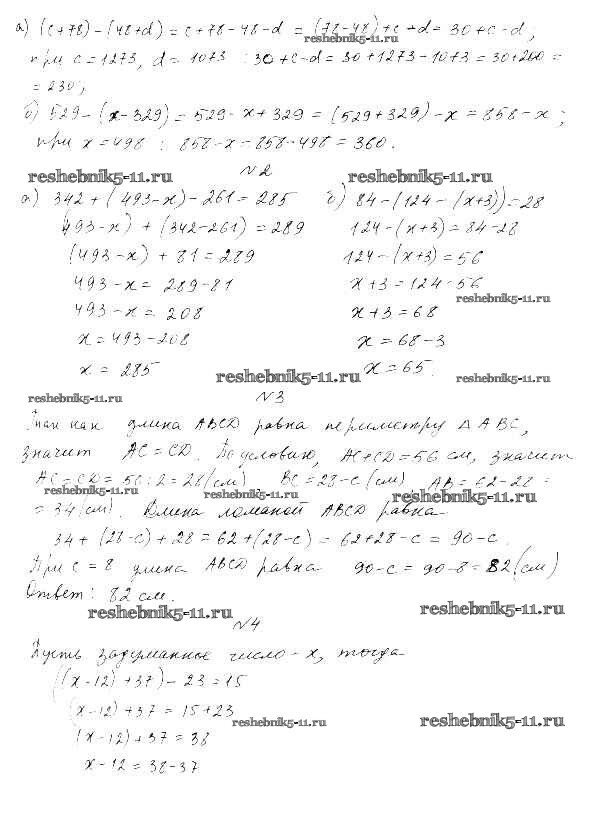 а) (c+78)-(48+d)=c+78-48-d=(78-48)+c-d=30+c-d;
reshebnik5-11.ru
при c=1273, d=1073 :30+c-d=30+1273-1073=30+200=
=230;
б) 529-(x-329)=529-x+329=(529+329)-x=858-x;
при x=498 : 858-x=858-498=360.
N2
reshebnik5-11.ru reshebnik5-11.ru
а) 342+(493-x)-261=285 б) 84-(124-(x+3))=28
(493-x)+(342-261)=289 124-(x+3)=84-28
(493-x)+81=289 124-(x+3)=56
493-x=289-81 x+3=124-56
reshebnik5-11.ru
493-x=208 x+3=68
x=493-208 x=68-3
x=285 reshebnik5-11.ru x=65. reshebnik5-11.ru
reshebnik5-11.ru N3
Так как длина ABCD равна периметру △ABC,
значит AC=CD. По условию, AC+CD=56 см, значит
AC=CD=56:2=28(см). BC=28-c(см), AB=62-28=
reshebnik5-11.ru reshebnik5-11.ru reshebnik5-11.ru
=34(см). Длина ломаной ABCD равна
34+(28-c)+28=62+(28-c)=62+28-c=90-c.
При c=8 длина ABCD равна 90-c=90-8=82(см)
Ответ: 82 см.
reshebnik5-11.ru reshebnik5-11.ru
N4
Пусть задуманное число-x, тогда
((x-12)+37)-23=15
(x-12)+37=15+23
reshebnik5-11.ru reshebnik5-11.ru
(x-12)+37=38
x-12=38-37